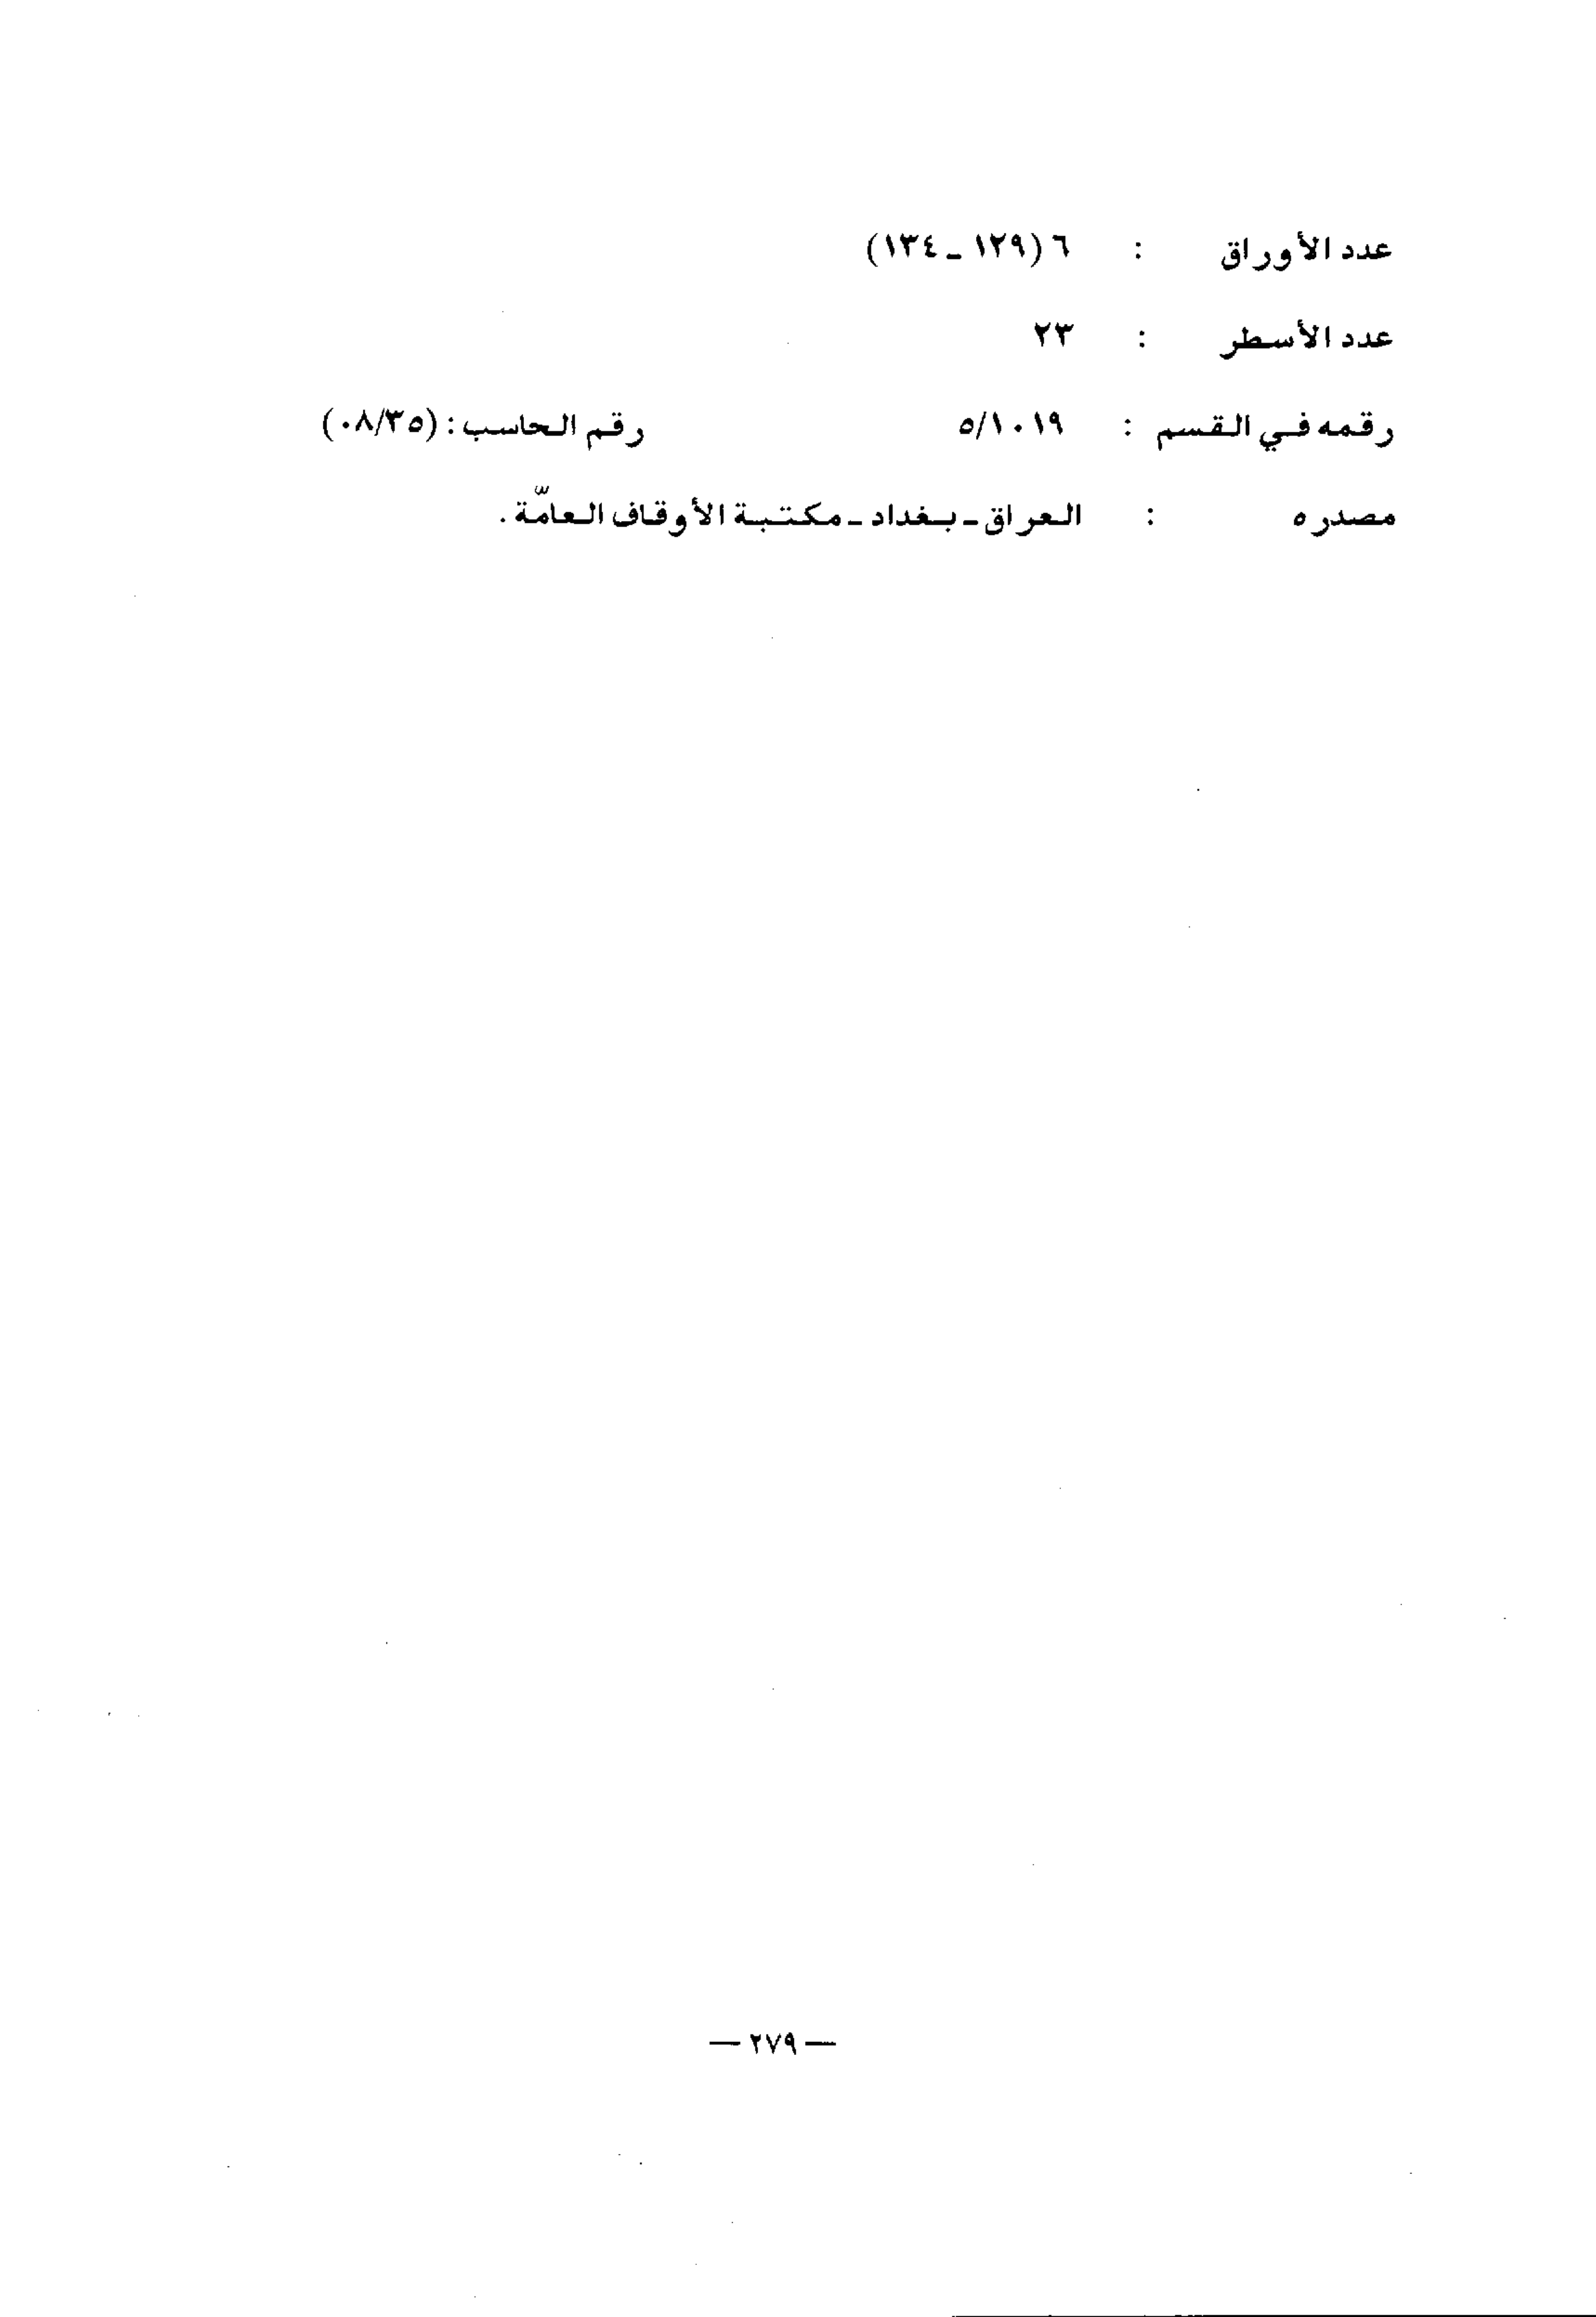 عدد الأوراق : ٦ (١٢٩ ـ ١٣٤)
عدد الأسطر : ٢٣
رقمه في القسم : ٥/١٠١٩ رقم الحاسب : (٠٨/٣٥)
مصدره : العراق ـ بغداد ـ مكتبة الأوقاف العامّة .
— ٢٧٩ —